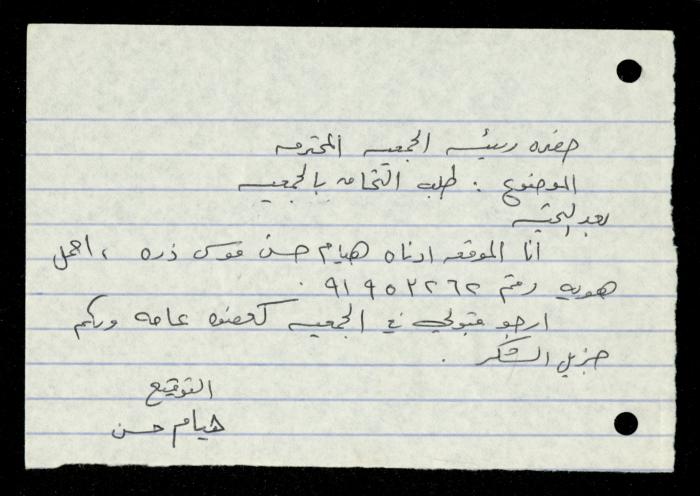 حضرة رئيسة الجمعية المحترمة
الموضوع : طلب التحاق بالجمعية
بعد التحية
أنا الموقعه ادناه هيام حسن موسى ذره ، احمل
هوية رقم ٩١٩٥٢٢٦٢ .
ارجو قبولي في الجمعية كعضوه عامه ولكم
جزيل الشكر .
التوقيع
هيام حسن